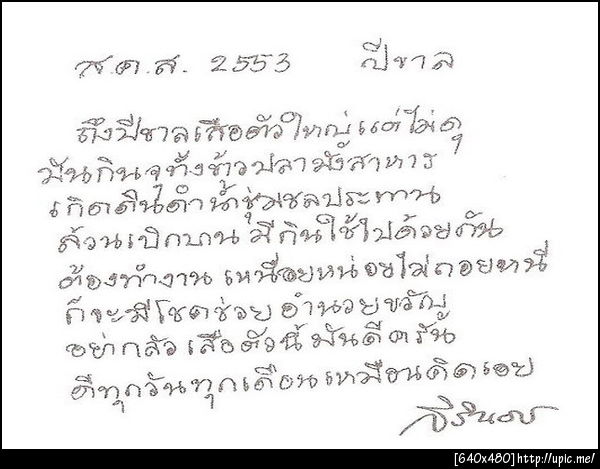 ส.ค.ส. 2553 ปีขาล
ถึงปีขาลเสือตัวใหญ่แต่ไม่ดุ
มันกินจุทั้งข้าวปลามังสาหาร
เกิดดินดำน้ำชุ่มชลประทาน
ล้วนเบิกบานมีกินใช้ไปด้วยกัน
ต้องทำงานเหนื่อยหน่อยไม่ถอยหนี
ก็จะมีโชคช่วยอำนวยขวัญ
อย่ากลัวเสือตัวนี้มันดีครัน
ดีทุกวันทุกเดือนเหมือนคิดเอย
สิรินธร
[640x480]http://upic.me/